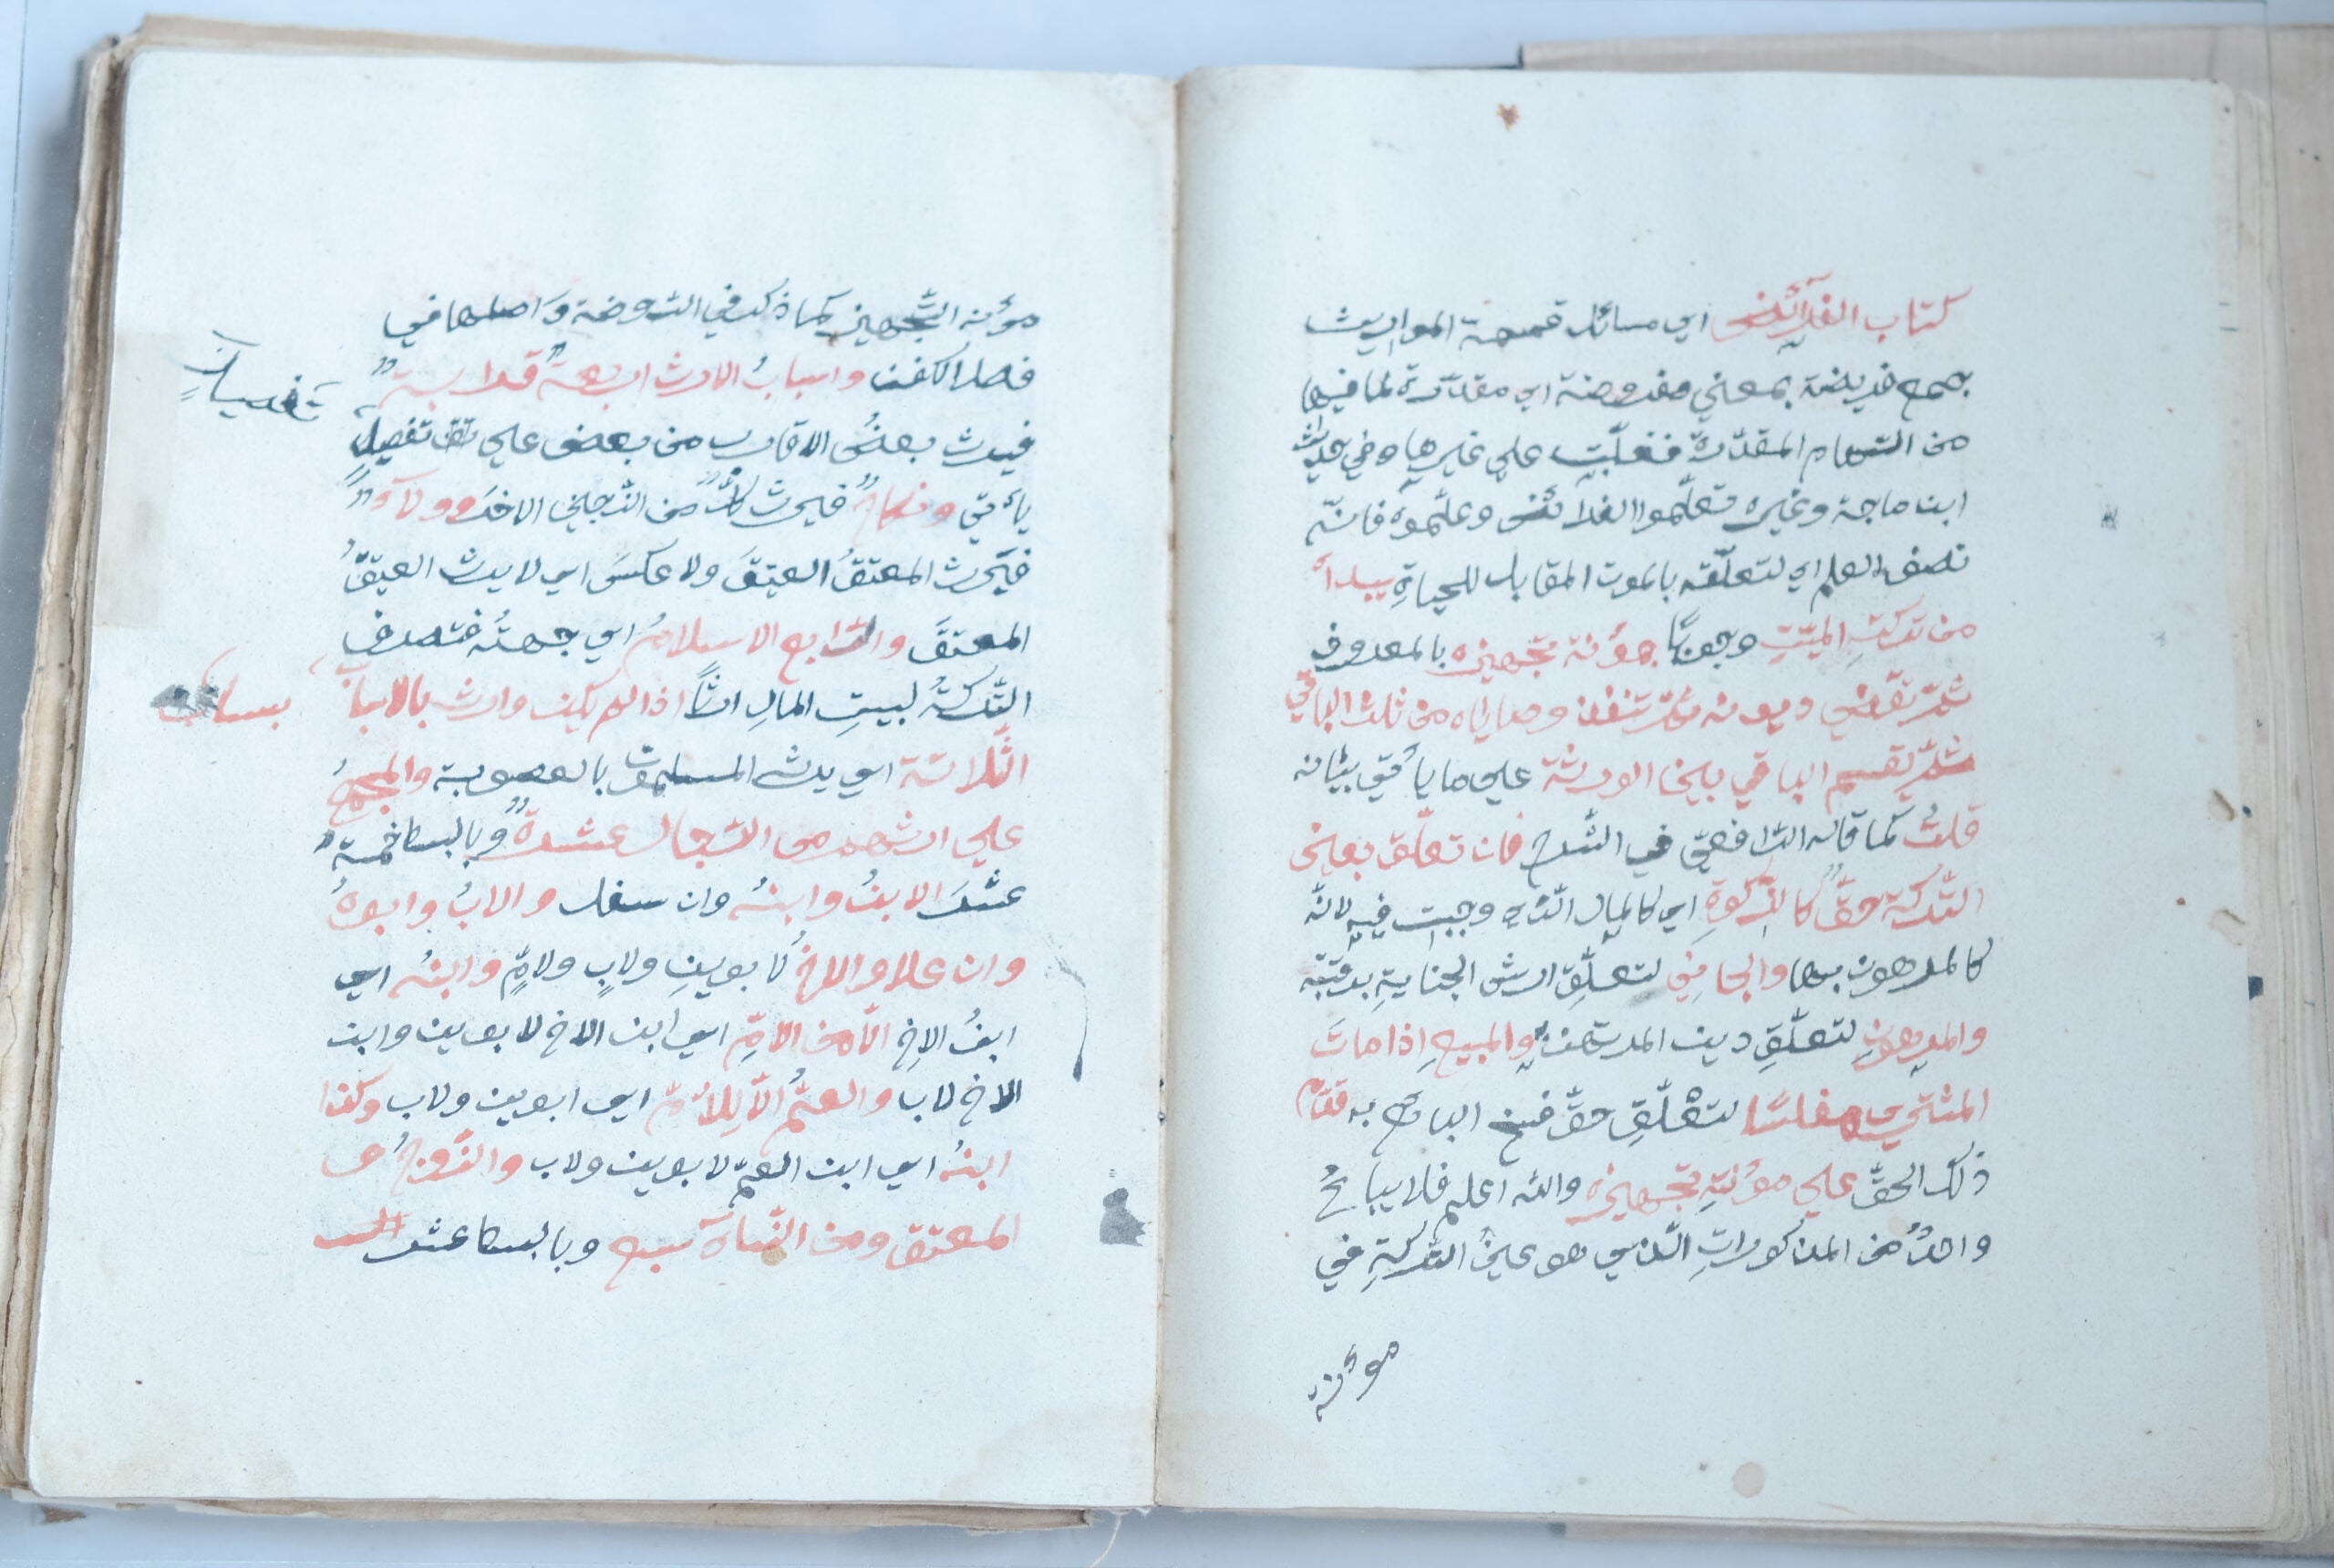 كتاب الفرآئض اي مسائل قسمة المواريث
جمع فريضة بمعني مفروضة اي مقدّرة لما فيها
من السهام المقدّرة فغلّبت علي غيرها وفي حديث
ابن ماجة وغيره تعلّموا الفرائض وعلّموه فانّه
نصف العلم اي لتعلّقه بالموت المقابل للحياةِ يبدأ
من تركةِ الميّتِ وجوبًا بمؤنة تجهيزه بالمعروف
ثمّ تقضي ديونه ثمّ تنفذ وصاياه من ثلث الباقي
ثمّ يقسم الباقي بين الورثة علي ما يأتي بيانه
قلتُ كما قاله الرّافعيّ في الشّرح فان تعلّق بعين
التّركة حقٌّ كالزّكوةِ اي كالمال الّذي وجبت فيه لانّه
كالمرهون بها والجاني لتعلّقِ ارش الجنايةِ برقبته
والمرهونِ لتعلّقِ دين المرتهن به والمبيعِ اذا ماتَ
المشتري مفلسًا لتعلّقِ حقّ فسخ البائع به قدّم
ذلك الحقّ علي مؤنةِ تجهيزه والله اعلم فلا يباعُ
واحدٌ من المذكوراتِ الّذي هو عينُ التّركةِ في
مؤنة
مؤنه التّجهيز كما ذكر في الرّوضة واصلها في
فصل الكفن واسبابُ الارث اربعةٌ قرابةٌ
فيرث بعضُ الاقارب من بعض علي تفصيل
تفصيل
يأتي ونكاحٌ فيرث كلٌّ من الزّوجين الاخرَ وولآءٌ
فيَرث المعتقُ العتيقَ ولا عكسَ اي لا يرث العتيقُ
المعتقَ والرّابع الاسلامُ اي جهتُه فتصرف
التّركةُ لبيتِ المالِ ارثًا اذا لم يكن وارث بالاسباب
الثّلاثة اي يرثه المسلمون بالعصوبة والمجمعُ
علي ارثهم من الرّجال عشرةٌ وبالبسط خمسة
عشَر الابنُ وابنُه وان سفل والابُ وابوهُ
وان علا والاخُ لابوينِ ولابٍ ولامٍّ وابنُه اي
ابنُ الاخِ الّا من الامِّ اي ابن الاخ لابوين وابن
الاخ لاب والعمُّ الّا للأُمّ اي ابوين ولاب وكذا
ابنُه اي ابن العمّ لابوين ولاب والزّوجُ و
المعتق ومن النّسآء سبع وبالبسط عشر